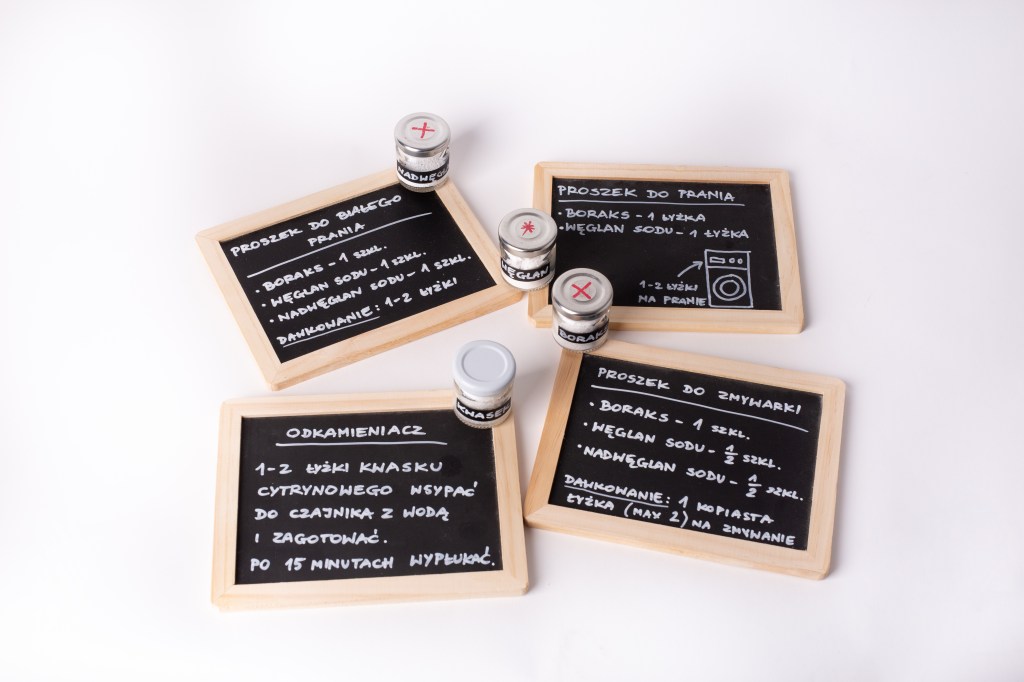 NADWĘGLAN
PROSZEK DO BIAŁEGO
PRANIA
• BORAKS - 1 SZKL.
• WĘGLAN SODU - 1 SZKL.
• NADWĘGLAN SODU - 1 SZKL.
DAWKOWANIE: 1-2 ŁYŻKI
PROSZEK DO PRANIA
• BORAKS - 1 ŁYŻKA
• WĘGLAN SODU - 1 ŁYŻKA
1-2 ŁYŻKI
NA PRANIE
WĘGLAN
BORAKS
KWASEK
ODKAMIENIACZ
1-2 ŁYŻKI KWASKU
CYTRYNOWEGO WSYPAĆ
DO CZAJNIKA Z WODĄ
I ZAGOTOWAĆ.
PO 15 MINUTACH WYPŁUKAĆ.
PROSZEK DO ZMYWARKI
• BORAKS - 1 SZKL.
• WĘGLAN SODU - 1/2 SZKL.
• NADWĘGLAN SODU - 1/2 SZKL.
DAWKOWANIE: 1 KOPIASTA
ŁYŻKA (MAX 2) NA ZMYWANIE